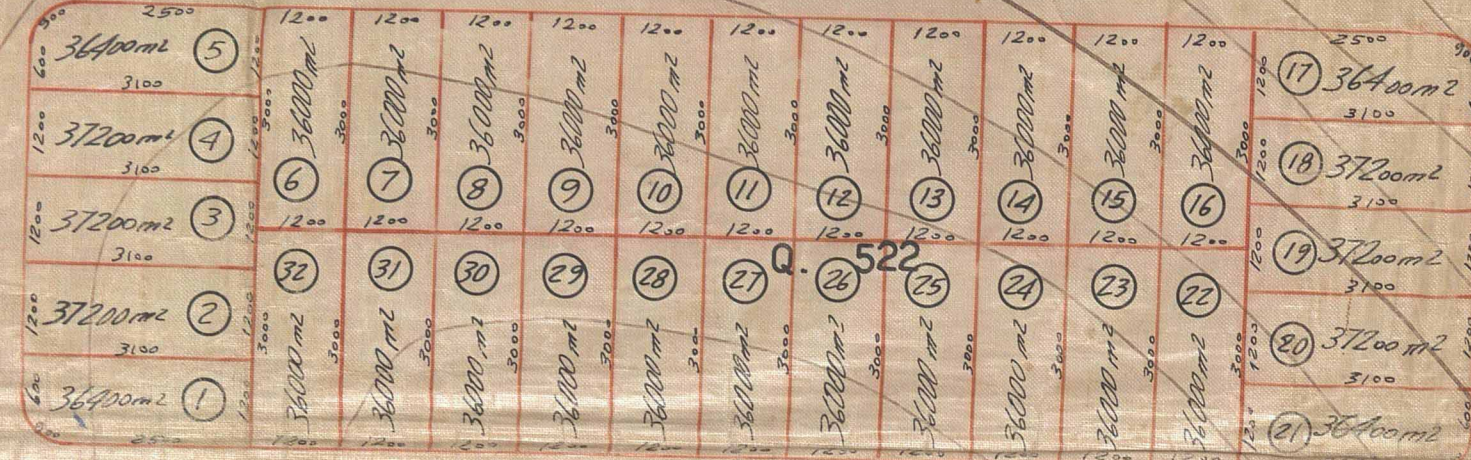 2500
900
600 36400m2 5 1200
3100
1200 37200m2 4 1200
3100
1200 37200m2 3 1200
3100
1200 37200m2 2 1200
3100
600 36400m2 1 1200
900 2500
1200 1200 1200 1200 1200 1200 1200 1200 1200 1200 1200
36000m2 36000m2 36000m2 36000m2 36000m2 36000m2 36000m2 36000m2 36000m2 36000m2 36000m2
3000 3000 3000 3000 3000 3000 3000 3000 3000 3000 3000 3000
6 7 8 9 10 11 12 13 14 15 16
1200 1200 1200 1200 1200 1200 1200 1200 1200 1200 1200
Q. 522
32 31 30 29 28 27 26 25 24 23 22
3000 3000 3000 3000 3000 3000 3000 3000 3000 3000 3000 3000
36000m2 36000m2 36000m2 36000m2 36000m2 36000m2 36000m2 36000m2 36000m2 36000m2 36000m2
1200 1200 1200 1200 1200 1200 1200 1200 1200 1200 1200
2500
1200 17 36400m2
3100
1200 18 37200m2
3100
1200 19 37200m2
3100
1200 20 37200m2
3100
1200 21 36400m2